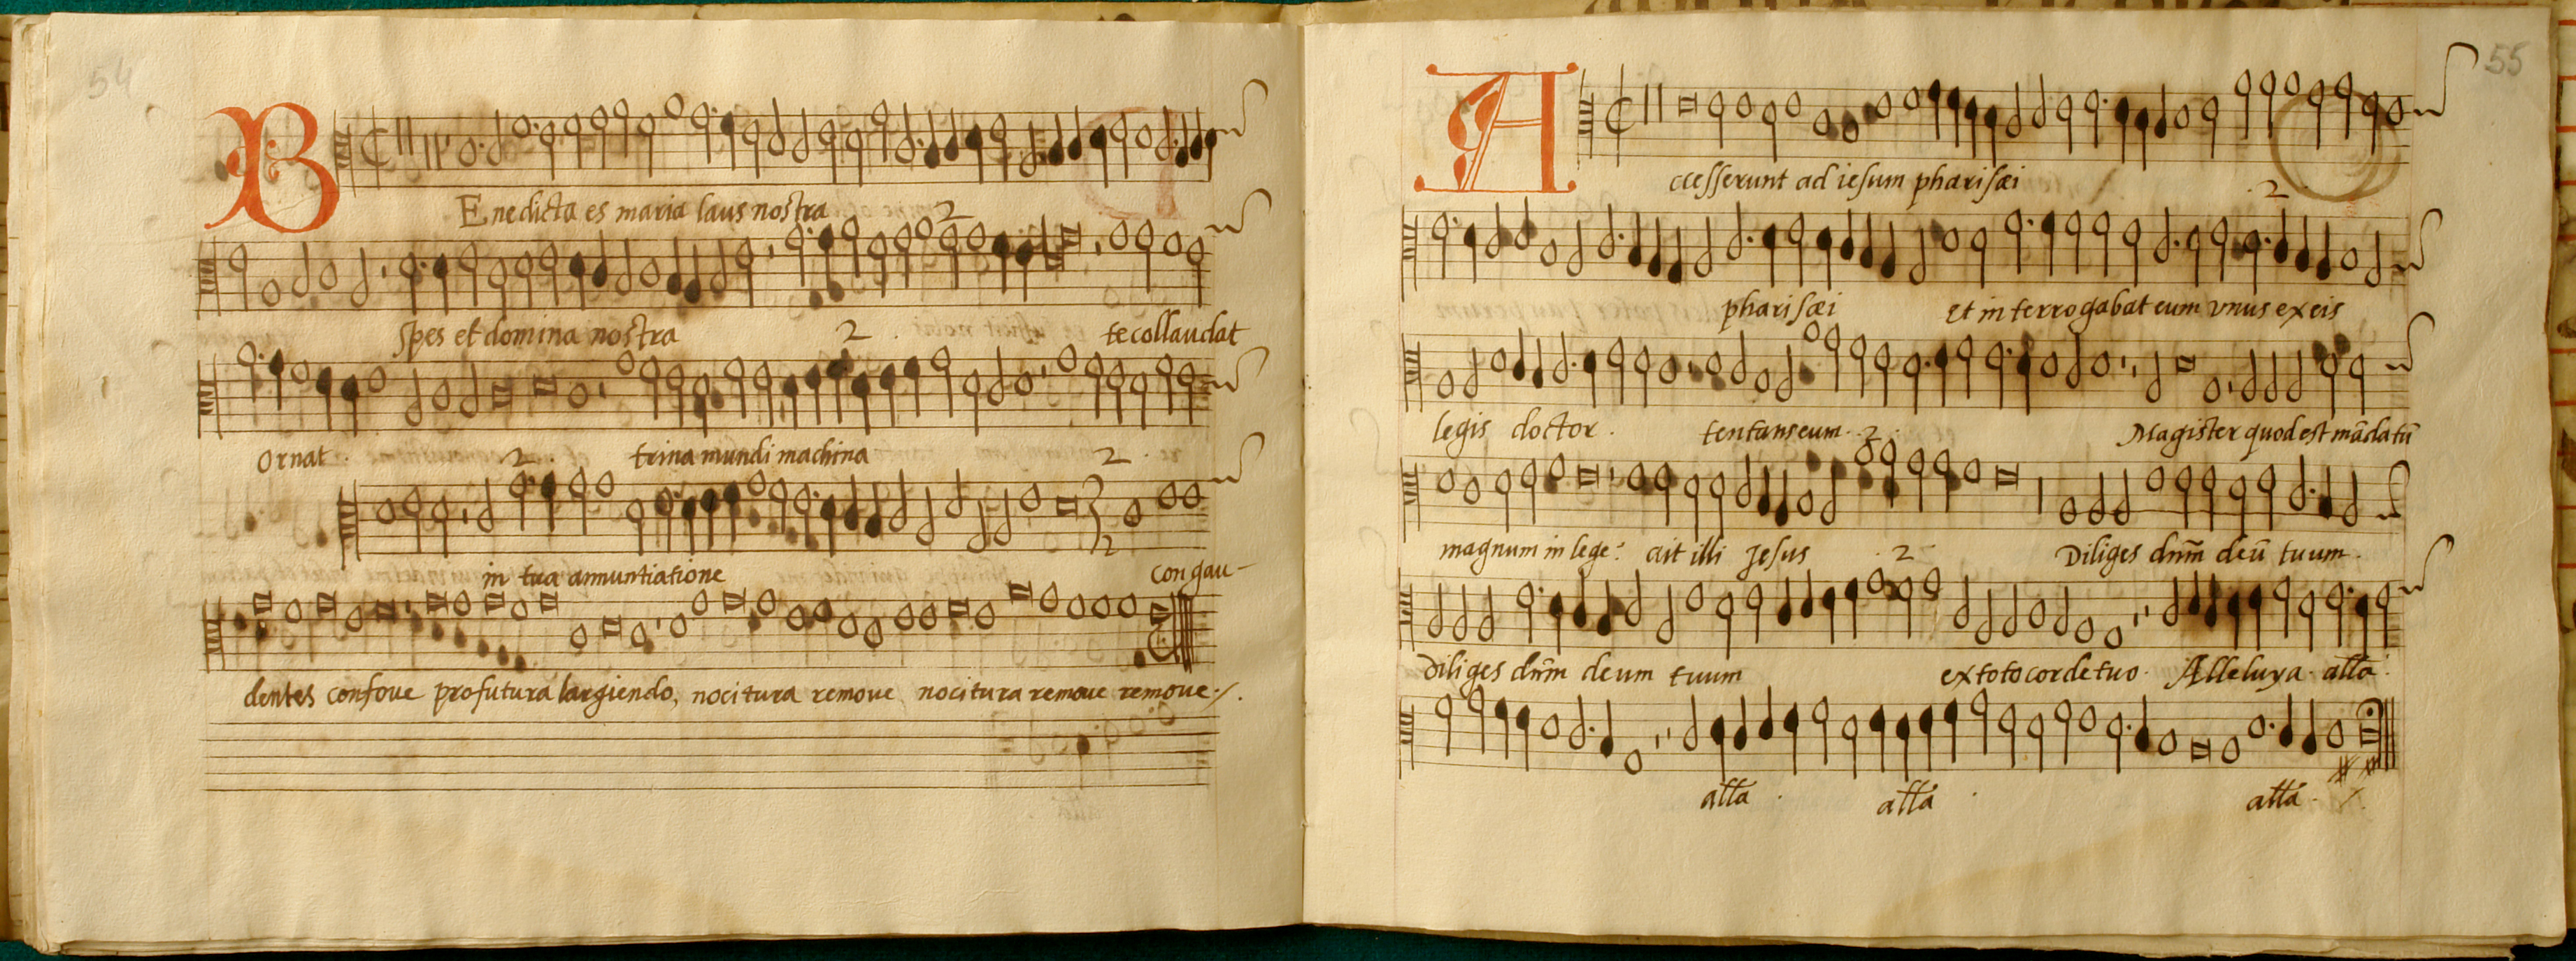 54
BEnedicta es maria laus nostra
2
spes et domina nostra 2 te collaudat
Ornat 2 trina mundi machina 2
2
in tua annuntiatione congau-
dentes confove profutura largiendo, nocitura remove nocitura remove remove
55
Accesserunt ad iesum pharisæi
2
pharisæi et interrogabat eum unus ex eis
legis doctor tentans eum 2 Magister quod est mādatū
magnum in lege? ait illi Jesus 2 Diliges dn̄m deū tuum
Diliges dn̄m deum tuum ex toto corde tuo Alleluya alla
alla alla alla